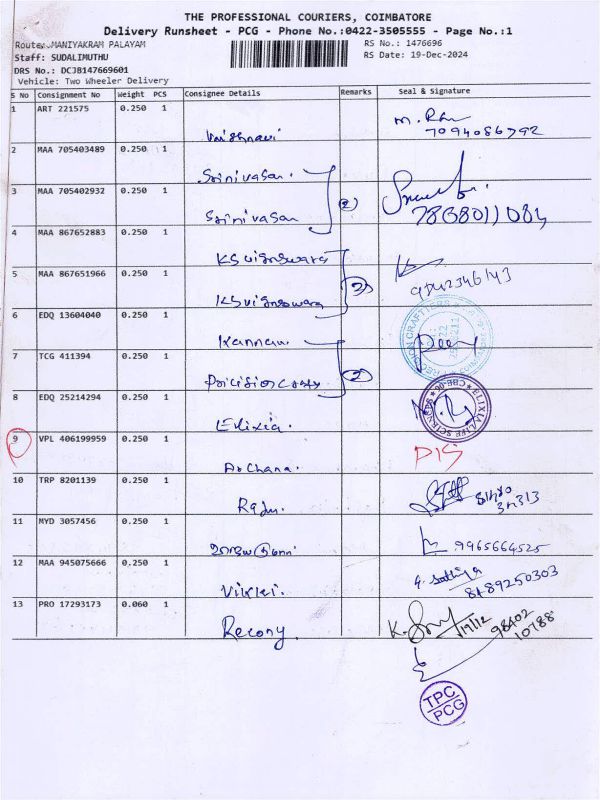 THE PROFESSIONAL COURIERS, COIMBATORE
Delivery Runsheet - PCG - Phone No.:0422-3505555 - Page No.:1
Route: MANIYAKRAM PALAYAM
RS No.: 1476696
Staff: SUDALIMUTHU
RS Date: 19-Dec-2024
DRS No.: DCJB147669601
Vehicle: Two Wheeler Delivery
S No Consignment No Weight PCS Consignee Details Remarks Seal & Signature
1 ART 221575 0.250 1 Vaishnavi
7094086792
2 MAA 705403489 0.250 1 Srinivasan.
3 MAA 705402932 0.250 1 Srinivasan 2
4 MAA 867652883 0.250 1 KSvigneswara
5 MAA 867651966 0.250 1 KSvigneswara 2
9842346143
6 EDQ 13604040 0.250 1 Kannan
7 TCG 411394 0.250 1 2
8 EDQ 25214294 0.250 1 Elixia.
ELIXIA LIFE SCIENCES CBE-06
9 VPL 406199959 0.250 1 Archana. DIS
10 TRP 8201139 0.250 1 Raju.
11 MYD 3057456 0.250 1 9965664525
12 MAA 945075666 0.250 1 Vikki. 8489250303
13 PRO 17293173 0.060 1 Recony. 19/12 98402
10788
TPC
PCG